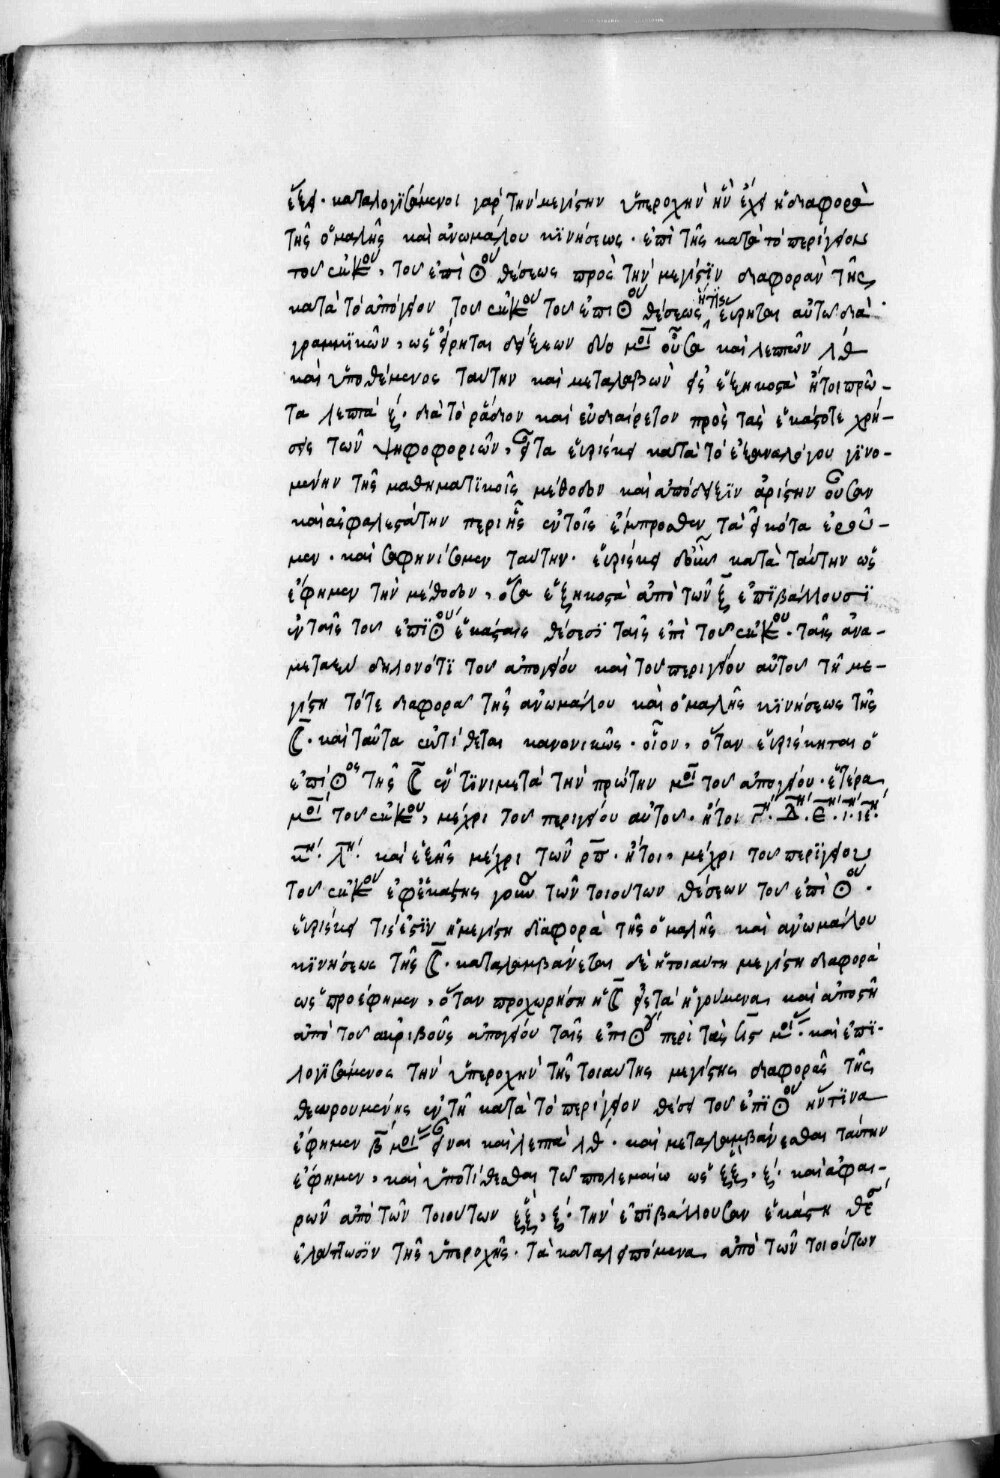 ἕξει· καταλογιζόμενοι γὰρ τὴν μεγίστην ὑπεροχὴν ἣν ἔχει ἡ διαφορὰ
τῆς ὁμαλῆς καὶ ἀνωμάλου κϊνήσεως· ἐπὶ τῆς κατὰ τὸ περίγειον
τοῦ ἐκκ(ου), τοῦ ἐπὶ ☉ου θέσεως πρὸς τὴν μεγίστϊν διαφορὰν τῆς
κατὰ τὸ ἀπόγειον τοῦ ἐκκου τοῦ ἐπι☉ου θέσεως ἥτις εἴληπται αὐτῶ διὰ
γραμμϊκῶν, ὡς εἴρηται δείξεων δύο μοι οὖσα καὶ λεπτῶν λθ
καὶ ὑποθέμενος ταύτην καὶ μεταλαβὼν εἰς ἑξηκοστὰ ἤτοι πρῶ-
τα λεπτὰ ξ· διὰ τὸ ῥάδιον καὶ εὐδιαίρετον πρὸς τὰς ἑκάστοτε χρή-
σεις τῶν ψηφοφοριῶν, εἶτα εὑρίσκει κατὰ τὸ ἐξαναλόγου γϊνο-
μένην τῆς μαθηματϊκοῖς μέθοδον καὶ ἀπόδειξϊν ἀρίστην οὖσαν
καὶ ἀσφαλεστάτην περὶ ἧς ἐν τοῖς ἔμπροσθεν τὰ εἰκότα ἐροῦ-
μεν· καὶ σαφηνίσομεν ταύτην· εὑρίσκει οὖν κατὰ ταύτην ὡς
ἔφημεν τὴν μέθοδον, ὅσα ἑξηκοστὰ ἀπὸ τῶν ξ ἐπϊβάλλουσϊ
ἐν ταῖς τοῦ ἐπϊ☉ου ἑκάσταις θέσεσϊ ταῖς ἐπὶ τοῦ ἐκκου· ταῖς ἀνα-
μεταξὺ δηλονότϊ τοῦ ἀπογείου καὶ τοῦ περιγείου αὐτοῦ τῆ με-
γίστη τότε διαφορᾶ τῆς ἀνωμάλου καὶ ὁμαλῆς κϊνήσεως τῆς
☾· καὶ ταῦτα ἐκτίθεται κανονικῶς· οἷον, ὅταν εὑρίσκηται ὁ
ἐπὶ☉ος τῆς ☾ ἔν τϊνι μετὰ τὴν πρώτην μοι τοῦ ἀπογείου· ἑτέρα
μοι τοῦ ἐκκου, μέχρι τοῦ περιγείου αὐτοῦ· ἤτοι γη· δη· εη· ιη· ιεη·
κη· λη· καὶ ἑξῆς μέχρι τῶν ρπ· ἤτοι, μέχρι τοῦ περϊγείου
τοῦ ἐκκου ἐφ' ἑκάστης γοῦν τῶν τοιούτων θέσεων τοῦ ἐπὶ ☉ου·
εὑρίσκει τίς ἐστϊν ἡ μεγίστη δϊαφορὰ τῆς ὁμαλῆς καὶ ἀνωμάλου
κϊνήσεως τῆς ☾· καταλαμβάνεται δὲ ἡ τοιαύτη μεγίστη διαφορὰ
ὡς προέφημεν, ὅταν προχωρήση ἡ ☾ εἰς τὰ ἡγούμενα, καὶ ἀποστῆ
ἀπὸ τοῦ ἀκριβοῦς ἀπογείου ταῖς ἐπι☉ου περὶ τὰς μοι· καὶ ἐπϊ-
λογϊζόμενος τὴν ὑπεροχὴν τῆς τοιαύτης μεγίστης διαφορᾶς τῆς
θεωρουμένης ἐν τῆ κατὰ τὸ περίγειον θέσει τοῦ ἐπϊ☉ου ἥντϊνα
ἔφημεν β μοι εἶναι καὶ λεπτὰ λθ· καὶ μεταλαμβάνεσθαι ταύτην
ἔφημεν, καὶ ὑποτίθεσθαι τῶ πτολεμαίω ὡς ξξ, ξ· καὶ ἀφαι-
ρῶν ἀπὸ τῶν τοιούτων ξξ, ξ· τὴν ἐπϊβάλλουσαν ἑκάστη θέσει
ἐλάττωσϊν τῆς ὑπεροχῆς· τὰ καταλειπόμενα ἀπὸ τῶν τοιούτων